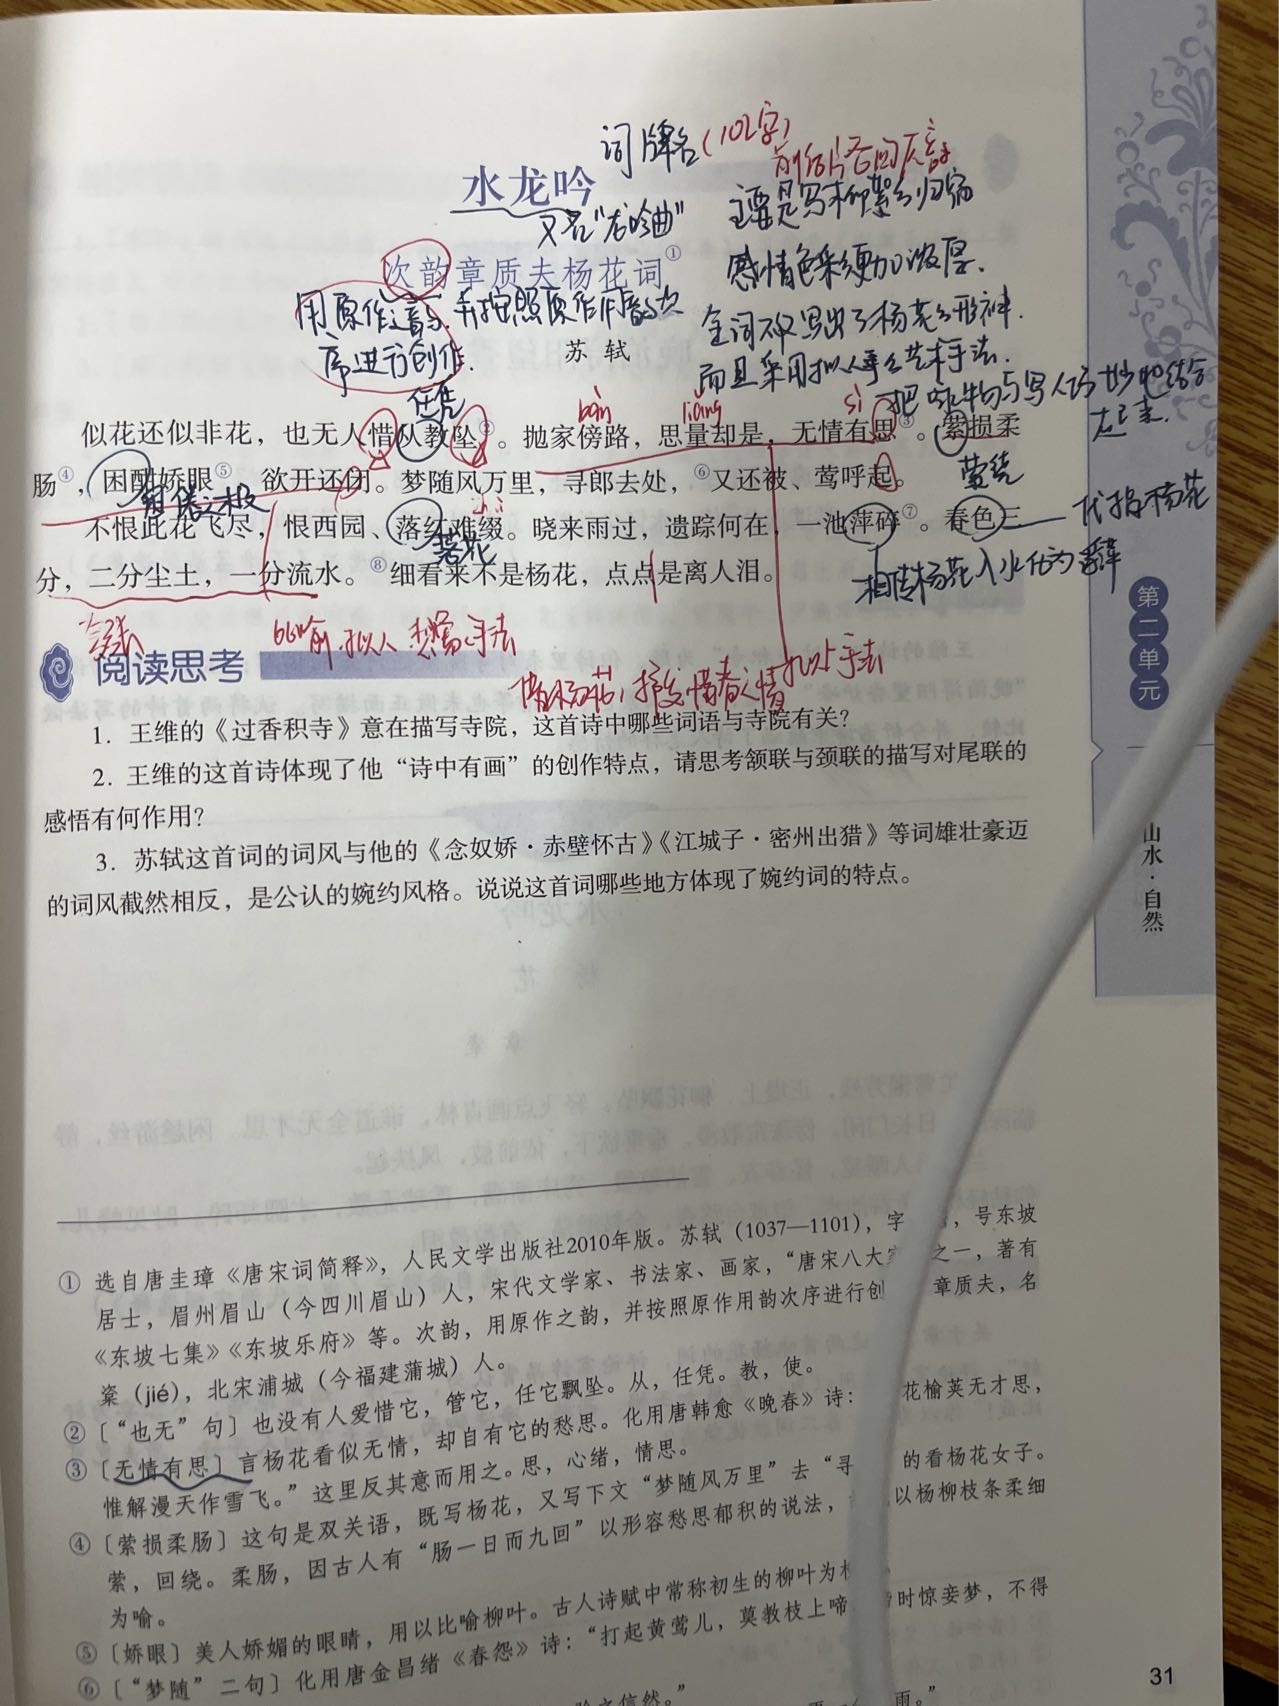 词牌名（102字）
水龙吟
又名“龙吟曲”
主要是写柳絮的归宿
感情色彩更加浓厚.
次韵章质夫杨花词①
用原作之韵.并按照原作用韵次
序进行创作.
全词不仅写出了杨花的形神.
而且采用拟人等的艺术手法.
把咏物与写人巧妙地结合
起来.
苏 轼
任凭
bàng liang sì
似花还似非花，也无人惜从教坠②。抛家傍路，思量却是，无情有思③。萦损柔
肠④，困酣娇眼⑤，欲开还闭。梦随风万里，寻郎去处，⑥又还被、莺呼起。
萦绕
不恨此花飞尽，恨西园、落红难缀。晓来雨过，遗踪何在，一池萍碎⑦。春色三
代指杨花
落花
分，二分尘土，一分流水。⑧细看来不是杨花，点点是离人泪。
相传杨花入水化为浮萍
比喻.拟人.想象手法
借杨花，抒发惜春之情
拟人手法
阅读思考
1. 王维的《过香积寺》意在描写寺院，这首诗中哪些词语与寺院有关？
2. 王维的这首诗体现了他“诗中有画”的创作特点，请思考颔联与颈联的描写对尾联的
感悟有何作用？
3. 苏轼这首词的词风与他的《念奴娇·赤壁怀古》《江城子·密州出猎》等词雄壮豪迈
的词风截然相反，是公认的婉约风格。说说这首词哪些地方体现了婉约词的特点。
第二单元
山水·自然
① 选自唐圭璋《唐宋词简释》，人民文学出版社2010年版。苏轼（1037—1101），字 ，号东坡
居士，眉州眉山（今四川眉山）人，宋代文学家、书法家、画家，“唐宋八大家 之一，著有
《东坡七集》《东坡乐府》等。次韵，用原作之韵，并按照原作用韵次序进行创 章质夫，名
楶（jié），北宋浦城（今福建蒲城）人。
② 〔“也无”句〕也没有人爱惜它，管它，任它飘坠。从，任凭。教，使。
③ 〔无情有思〕言杨花看似无情，却自有它的愁思。化用唐韩愈《晚春》诗： 花榆荚无才思，
惟解漫天作雪飞。”这里反其意而用之。思，心绪，情思。
④ 〔萦损柔肠〕这句是双关语，既写杨花，又写下文“梦随风万里”去“寻 的看杨花女子。
萦，回绕。柔肠，因古人有“肠一日而九回”以形容愁思郁积的说法， 以杨柳枝条柔细
为喻。
⑤ 〔娇眼〕美人娇媚的眼睛，用以比喻柳叶。古人诗赋中常称初生的柳叶为柳
⑥ 〔“梦随”二句〕化用唐金昌绪《春怨》诗：“打起黄莺儿，莫教枝上啼 时惊妾梦，不得
31